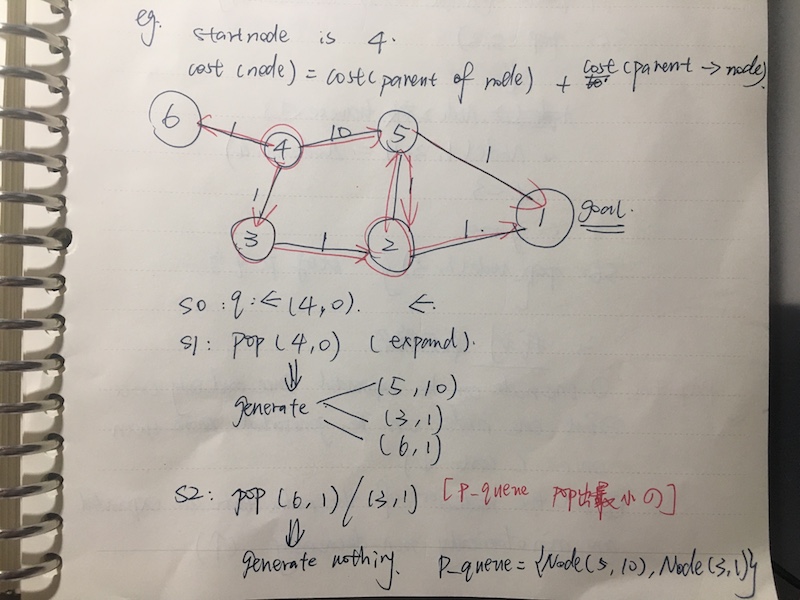 eg. startnode is 4.
cost (node) = cost(parent of node) + cost (parent → node).
6 1 4 10 5 1
1 1 goal.
3 1 2 1.
S0 : q : ← (4,0). ←.
S1 : pop (4,0) (expand).
generate (5,10)
(3,1)
(6,1)
S2 : pop (6,1) / (3,1) [P-queue pop出最小の]
generate nothing. P_queue = {Node(5,10), Node(3,1)}